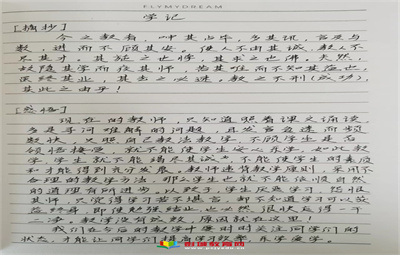 FLYMYDREAM
学记
[摘抄]
今之教者，呻其占毕，多其讯，言及于
数，进而不顾其安。使人不由其诚，教人不
尽其才，其施之也悖，其求之也佛。夫然，
故隐其学而疾其师，苦其难而不知其益也，
虽终其业，其去之必速。教之不刑（成功），
其此之由乎！
[感悟]
现在的教师，只知道照着课文诵读，
多是寻问难解的问题，且发言急速而频
数快，只照自己教法教学，不顾学生是否
领悟接受，就不能使学生安心乐学。如此教
学，学生就不能竭尽其诚，不能使学生的素质
和才能得到充分发展。教师违背教学原则，采用不
合理的教学方法，那么学生也就不能依顺自然
的道理有所进步。以致于，学生厌恶学习，怨恨
其师，只觉得学习苦不堪言，却不知道学习可以受
益终身，即使勉强结业，也必然很快忘得一干
二净。教学没有成效，原因就在这里！
我们在今后的教学中要时时关注同学们的
状态，才能让同学们提高学习效率，乐学爱学。